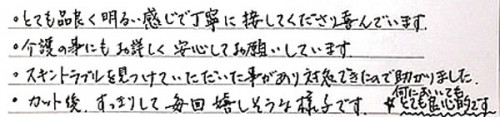 ・とても品良く明るい感じで丁寧に接してくださり喜んでいます.
・介護の事にもお詳しく安心してお願いしています.
・スキントラブルを見つけていただいた事があり対処できたので助かりました.
・カット後、すっきりして毎回嬉しそうな様子です.
☆何においてもとても良心的です